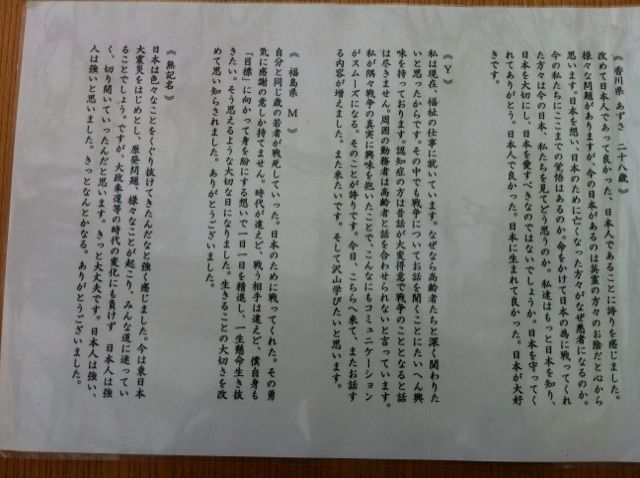 《香川県 あずさ 二十八歳》
改めて日本人であって良かった、日本人であることに誇りを感じました。
様々な問題がありますが、今の日本があるのは英霊の方々のお陰だと心から
思います。日本を想い、日本のために亡くなった方々がなぜ悪者になるのか。
今の私たちにここまでの覚悟はあるのか。命をかけて日本の為に戦ってくれ
た方々は今の日本、私たちを見てどう思うのか。私達はもっと日本を知り、
日本を大切にし、日本を愛すべきなのではないでしょうか。日本を守ってく
れてありがとう。日本人で良かった。日本に生まれて良かった。日本が大好
きです。
《Y》
私は現在、福祉の仕事に就いています。なぜなら高齢者たちと深く関わりた
いと思ったからです。その中でも戦争についてお話を聞くことにたいへん興
味を持っております。認知症の方は昔話が大変得意で戦争のこととなると話
は尽きません。周囲の勤務者は高齢者と話を合わせられないと言っています。
私が隅々戦争の真実に興味を抱いたことで、こんなにもコミュニケーション
がスムーズになる。そのことが誇りです。今日、こちらへ来て、またお話す
る内容が増えました。また来たいです。そして沢山学びたいと思います。
《福島県 M》
自分と同じ歳の若者が戦死していった。日本のために戦ってくれた。その勇
気に感謝の意しか持てません。時代が違えど、戦う相手は違えど、僕自身も
「目標」に向かって身を粉にする想いで一日一日を精進し、一生懸命生き抜
きたい。そう思えるような大切な日になりました。生きることの大切さを改
めて思い知らされました。ありがとうございました。
《無記名》
日本は色々なことをくぐり抜けてきたんだなと強く感じました。今は東日本
大震災をはじめとし、原発問題、様々なことが起こり、みんな道に迷ってい
ることでしょう。ですが、大政奉還等の時代の変化にも負けず 日本人は強
く、切り開いていったんだと思います。きっと大丈夫です。日本人は強い、
人は強いと思いました。きっとなんとかなる。ありがとうございました。